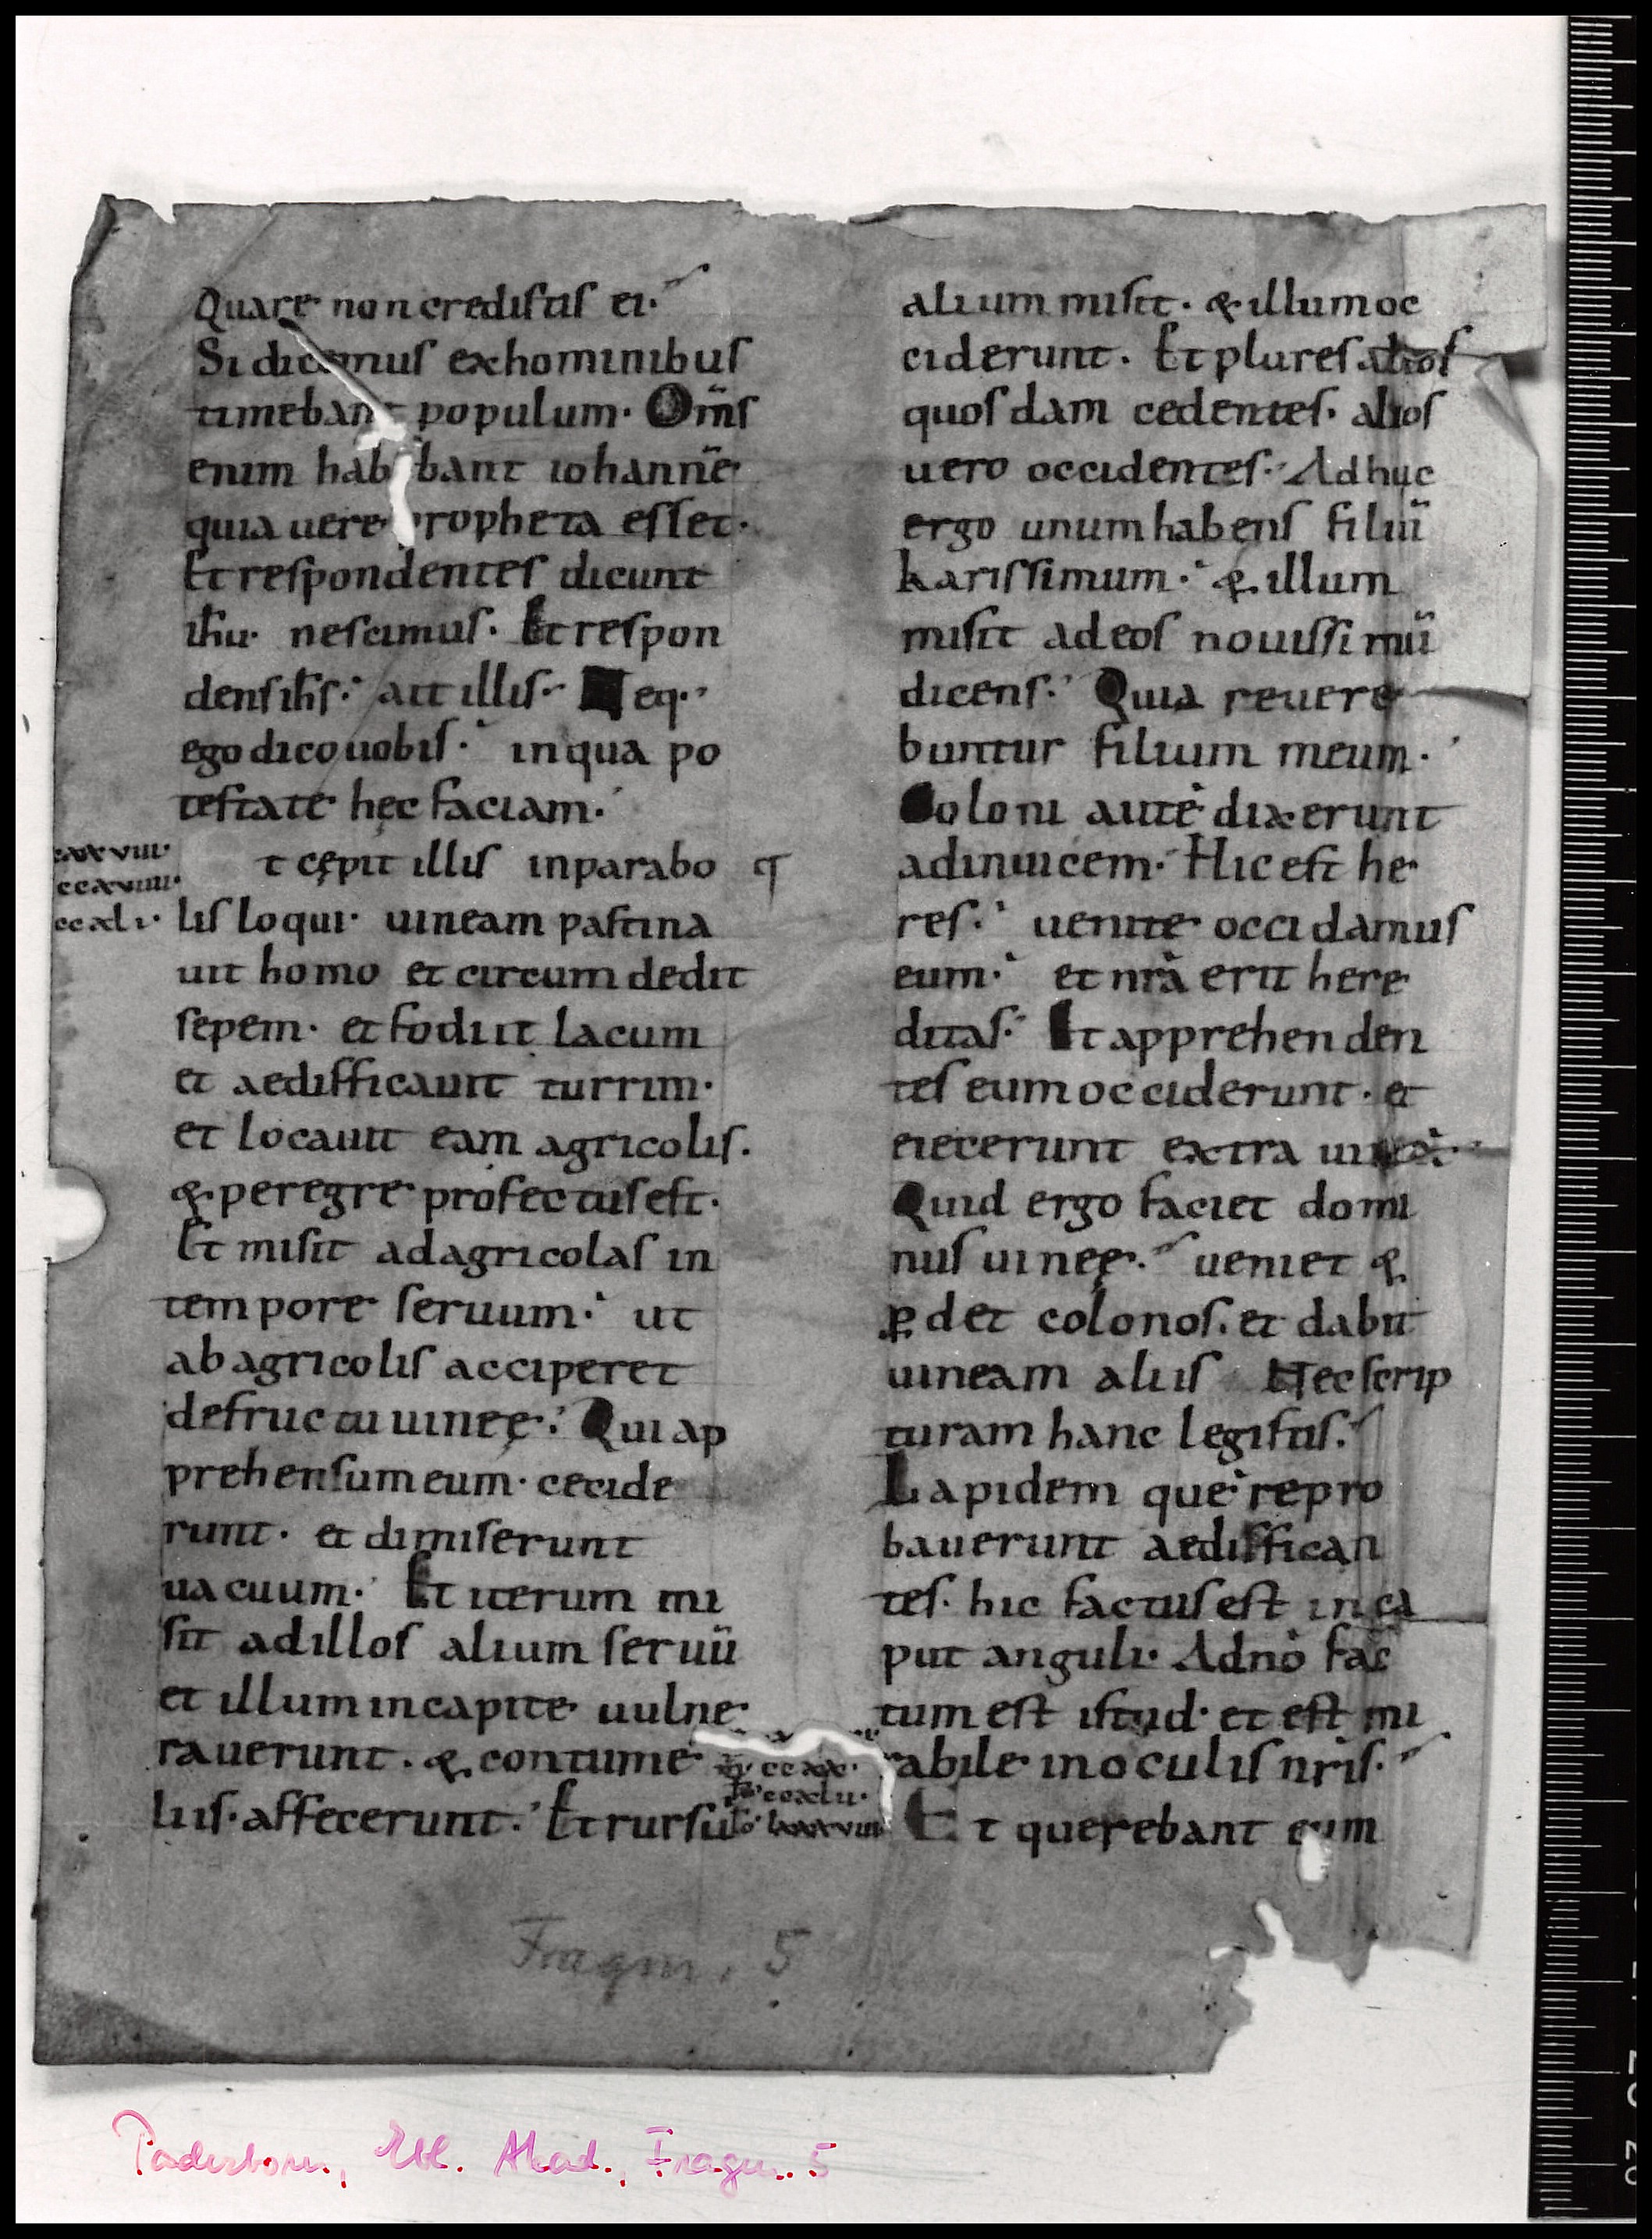 Quare non credistis ei.
Si dicemus ex hominibus
timebant populum. Om̅s
enim habebant iohanne̅
quia uere propheta esset.
Et respondentes dicunt
ih̅u. nescimus. Et respon
dens ih̅s. ait illis. Neq.
ego dico uobis. in qua po
testate hęc faciam.
cxxviii.
ccxviiii.
ccxli.
t cępit illis in parabo
lis loqui. uineam pastina
uit homo et circumdedit
sepem. et fodiit lacum
et aedifficauit turrim.
et locauit eam agricolis.
& peregre profectus est.
Et misit ad agricolas in
tempore seruum. ut
ab agricolis acciperet
de fructu uineę. Qui ap
prehensum eum. cecide
runt. et dimiserunt
uacuum. Et iterum mi
sit ad illos alium seruu̅
et illum in capite uulne
rauerunt. & contume
liis. affecerunt. Et rursu̅
alium misit. & illum oc
ciderunt. Et plures alios
quosdam cedentes. alios
uero occidentes. Adhuc
ergo unum habens filiu̅
karissimum. & illum
misit ad eos nouissimu̅
dicens. Quia reuere
buntur filium meum.
Coloni aute̅ dixerunt
ad inuicem. Hic est he
res. uenite occidamus
eum. et nr̅a erit here
ditas. Et apprehenden
tes eum occiderunt. et
eiecerunt extra uinea̅.
Quid ergo faciet domi
nus uineę. ueniet &
ꝑdet colonos. et dabit
uineam aliis Nec scrip
turam hanc legistis.
Lapidem que̅ repro
bauerunt aediffican
tes. hic factus est in ca
put anguli. A dn̅o fac
tum est istud. et est mi
rabile in oculis nr̅is.
ccxx.
ccxlii.
lxxxviii
Et querebant eum
Fragm. 5
Paderborn, Erzb. Akad., Fragm. 5